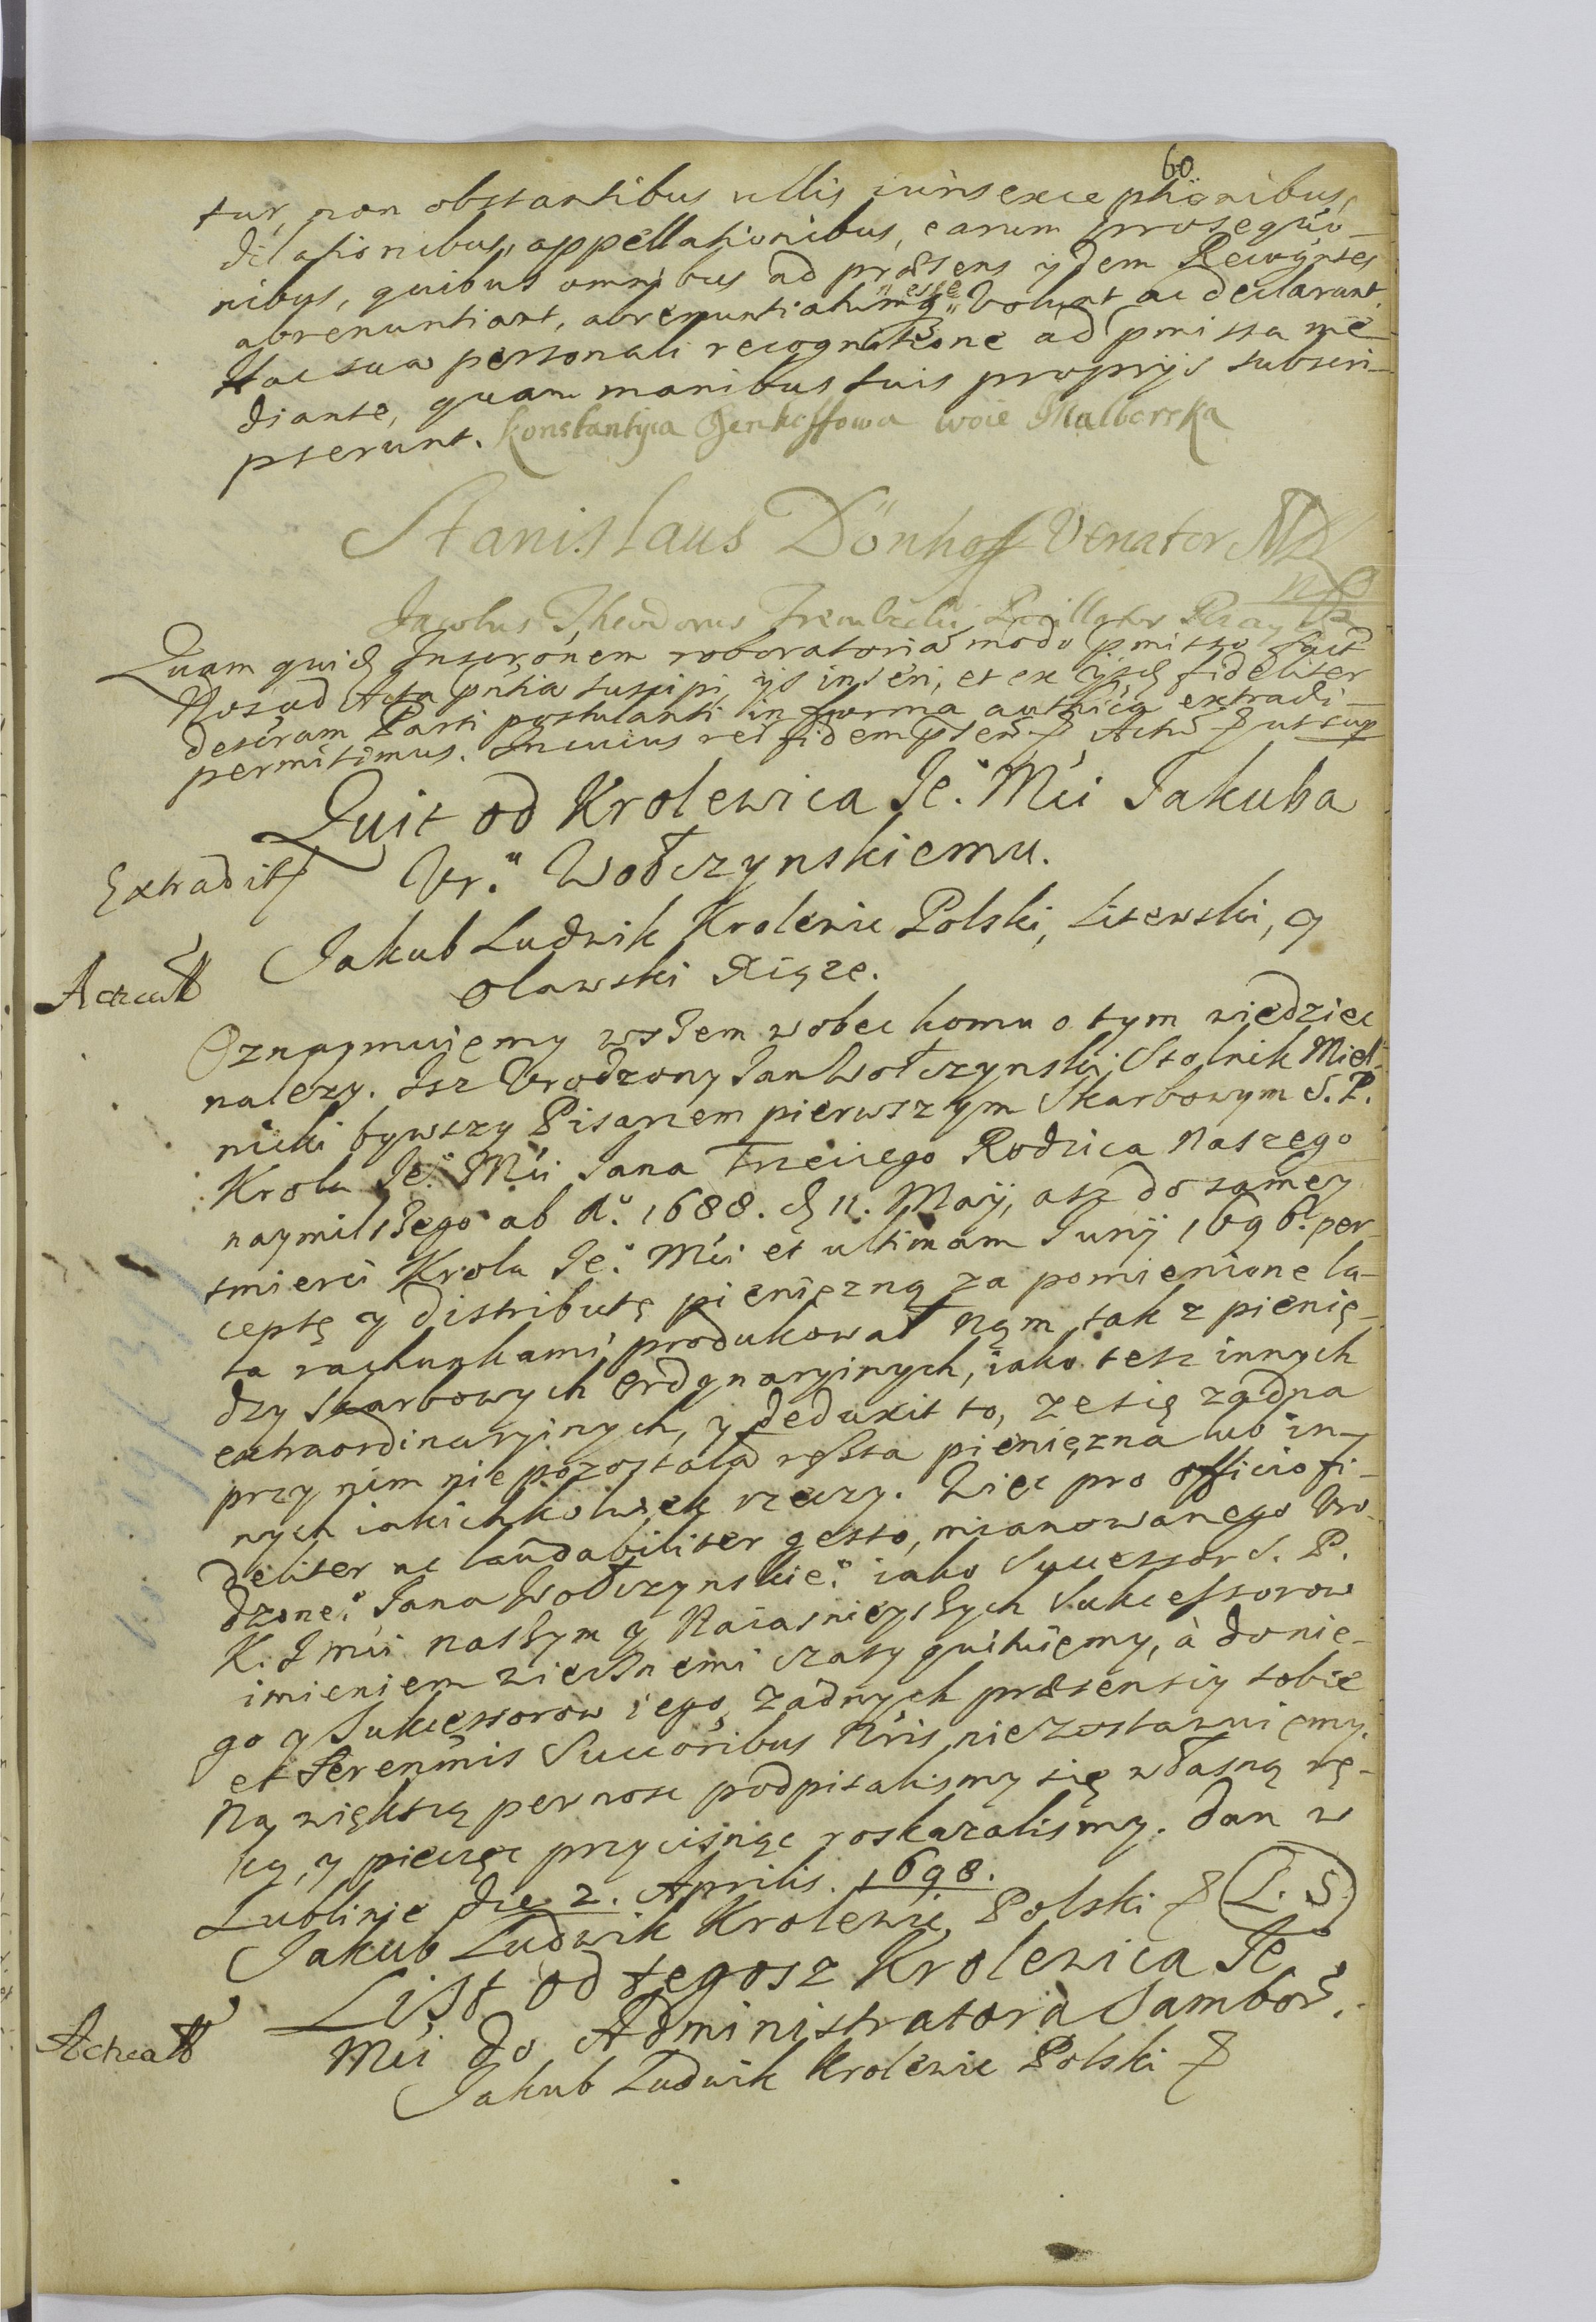 60
tur, non obstantibus ullis iuris exceptionibus,
dilationibus, appellationibus, earum prosequio-
nibus, quibus omnibus ad præsens ijdem Recogñtes
abrenuntiant, abrenuntiatumq esse volunt ac declarant.
Hac sua personali recognitione ad pmissa me-
diante, quam manibus suis proprijs subscri-
pserunt. Konstantyia Denhoffowa woie Malborska
Stanislaus Dönhoff Venator MDL
mp
Jacobus Theodorus Trembicki
Quam quid Inscrönem roboratoria modo pmisso fact
Nos ad Acta pntia suscipi, ijs inseri, et ex ijsd fideliter
descram Parti postulanti in forma authica extradi-
permitimus. In cuius rei fidem Actũ ut sup
Quit od Krolewica Je.º Mći Jakuba
Ur.u Wołczynskiemu.
Extradit
Jakub Ludwik Krolewic Polski, Litewski, y
Olawski Xiąże.
Oznaymuiemy wszem wobec komu o tym wiedziec
nalezy. Isz Urodzony Jan Wołczynski Stolnik Miel-
nicki bywszy Pisarzem pierwszym Skarbowym S. P.
Krola Je.º Mći Jana Trzeciego Rodzica Naszego
naymilszego ab Aº. 1688. d 11. Maij, asz do samey
smierci Krola Je.º Mći et ultimam Junij 1696. per-
ceptę y distributę pieniężną za pomienione la-
ta rachunkami produkował Nąm, tak z pienię-
dzy Skarbowych ordynaryinych, iako tesz innych
extraordinaryinych, y deduxit to, ze się żadna
przy nim nie pozostała reszta pieniężna lub in-
nych iakichkolwiek rzeczy. Więc pro officio fi-
deliter ac laudabiliter gesto, mianowanego Uro-
dzone.º Jana Wołczynskie.º iako Successor S. P.
K. J Mći naszym y Naiasnieyszych Sukcessorow
imieniem wiecznemi czasy quituiemy, à do nie-
go y Sukcessorow iego, żadnych prætensiy sobie
et Serenmis Succoribus Nris nie zostawuiemy.
Na większą pewnosc podpisalismy się własną rę-
ką, y pieczęc przycisnąc roskazalismy. Dan w
Lublinie die 2. Aprilis. 1698.
Jakub Ludwik Krolewic Polski L. S.
List od tegosz Krolewica Je
Mći do Administratora Sambor.
Jakub Ludwik Krolewic Polski